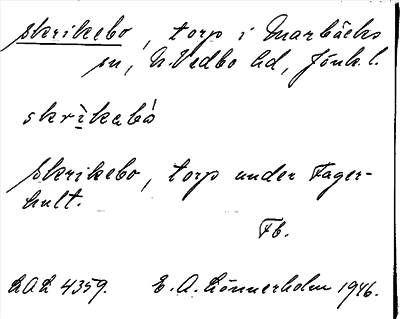 Skrikebo, torp i Marbäcks
sn, N. Vedbo hd, Jönk. l.
skrìkebó
Skrikebo, torp under Fager-
hult.
Fb.
LAL 4359. E. A. Lönnerholm 1946.